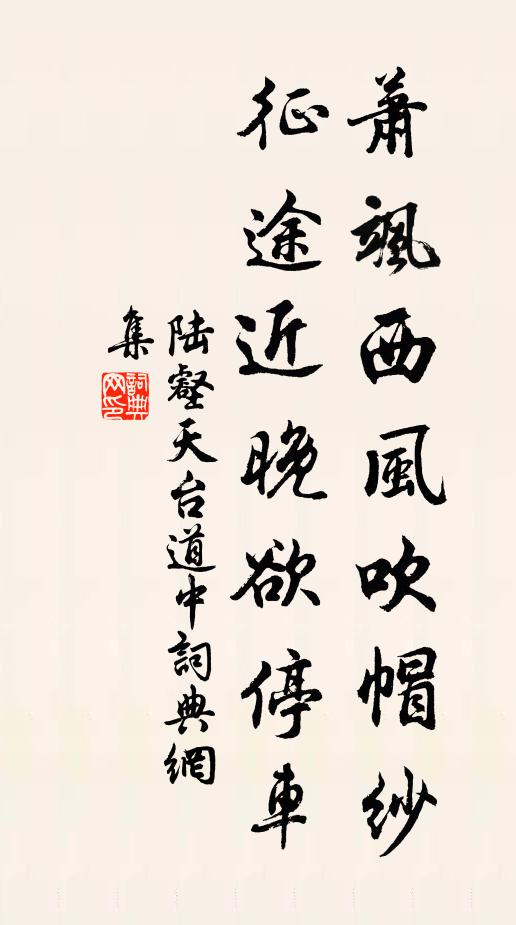 蕭颯西風吹帽紗
征途近晚欲停車
陆壑天台道中詞典網
集
詞典网印